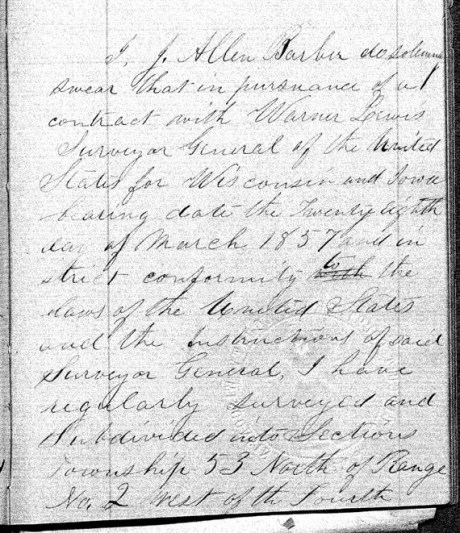 I, J. Allen Barber do solemnly
swear that in pursuance of a
contract with Warner Lewis
Surveyor General of the United
States for Wisconsin and Iowa
bearing date the Twenty Eighth
day of March 1857 and in
strict conformity to with the
Laws of the United States
and the instructions of said
Surveyor General, I have
regularly surveyed and
Subdivided into Sections
Township 53 North of Range
No. 2 West of the Fourth